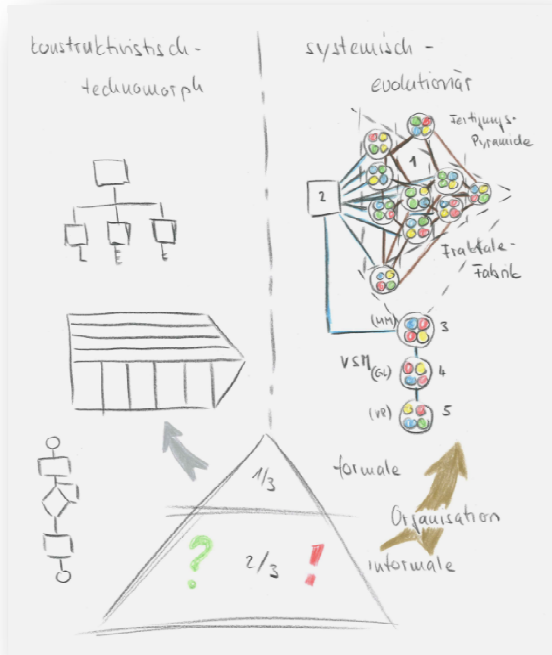 konstruktivistisch-
technomorph
systemisch-
evolutionär
Fertigungs-
Pyramide
1
2
Fraktale-
Fabrik
(UM)
3
VSM
(GL)
4
(VR)
5
1/3
formale
Organisation
informale
? 2/3 !